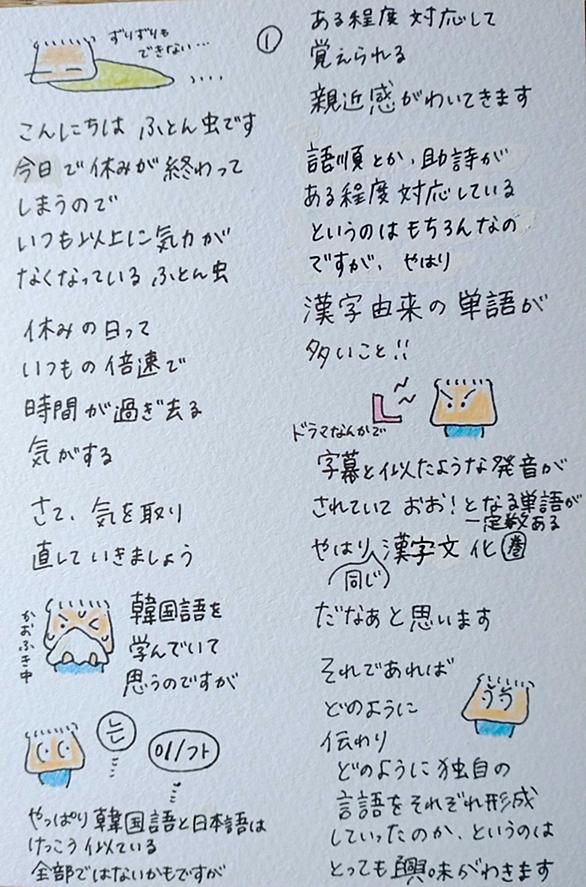 ずりずりも
できない…
こんにちは ふとん虫です
今日で休みが終わって
しまうので
いつも以上に気力が
なくなっている ふとん虫
休みの日って
いつもの倍速で
時間が過ぎ去る
気がする
さて、気を取り
直していきましょう
かおふき中
韓国語を
学んでいて
思うのですが
는
이/가
やっぱり韓国語と日本語は
けっこう似ている
全部ではないかもですが
①
ある程度対応して
覚えられる
親近感がわいてきます
語順とか、助詩が
ある程度対応している
というのはもちろんなの
ですが、やはり
漢字由来の単語が
多いこと!!
ドラマなんかで
字幕と似たような発音が
されていて おお!となる単語が
一定数ある
やはり同じ漢字文化圏
だなぁと思います
それであれば
どのように
伝わり
どのように独自の
言語をそれぞれ形成
していったのか、というのは
とっても興味がわきます